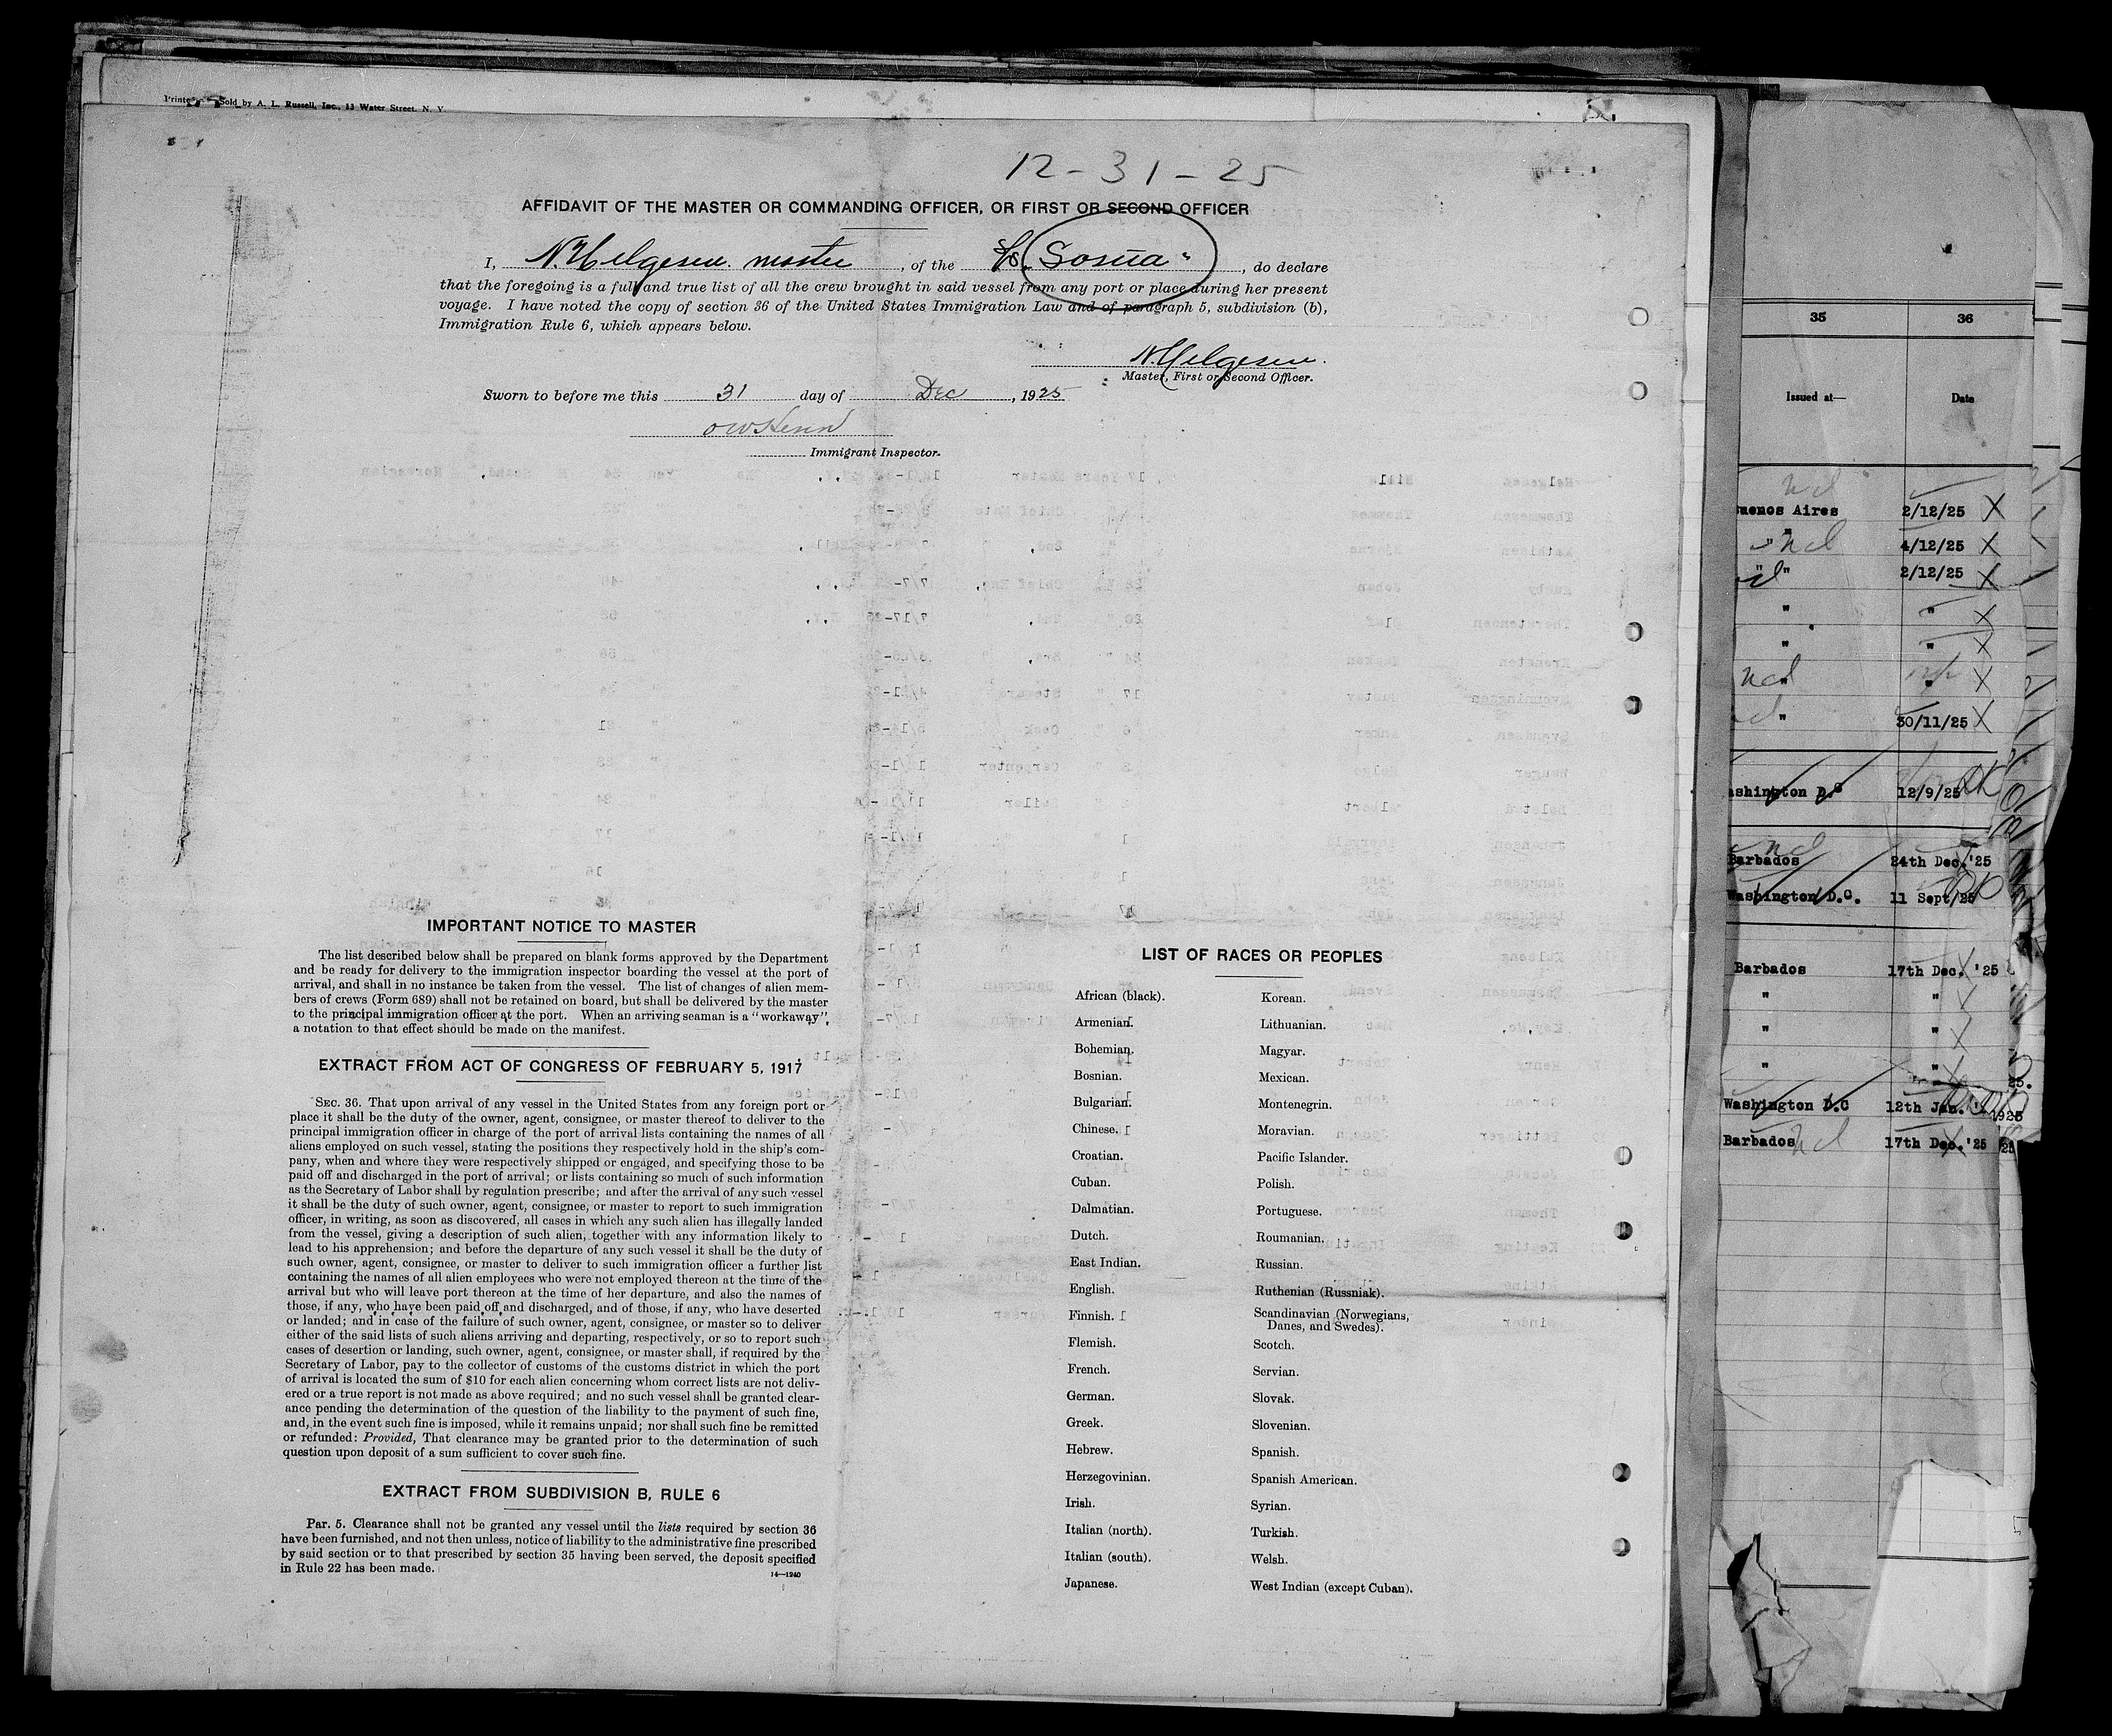 Sold by A. L. Russell, Inc., 13 Water Street, N. Y.
12-31-25
AFFIDAVIT OF THE MASTER OR COMMANDING OFFICER, OR FIRST OR SECOND OFFICER
I, N. Helgesen. master, of the S/S. "Sosua", do declare
that the foregoing is a full and true list of all the crew brought in said vessel from any port or place during her present
voyage. I have noted the copy of section 36 of the United States Immigration Law and of paragraph 5, subdivision (b),
Immigration Rule 6, which appears below.
N. Helgesen.
Master, First or Second Officer.
Sworn to before me this 31 day of Dec, 1925
Immigrant Inspector.
IMPORTANT NOTICE TO MASTER
The list described below shall be prepared on blank forms approved by the Department
and be ready for delivery to the immigration inspector boarding the vessel at the port of
arrival, and shall in no instance be taken from the vessel. The list of changes of alien mem-
bers of crews (Form 689) shall not be retained on board, but shall be delivered by the master
to the principal immigration officer at the port. When an arriving seaman is a "workaway",
a notation to that effect should be made on the manifest.
EXTRACT FROM ACT OF CONGRESS OF FEBRUARY 5, 1917
SEC. 36. That upon arrival of any vessel in the United States from any foreign port or
place it shall be the duty of the owner, agent, consignee, or master thereof to deliver to the
principal immigration officer in charge of the port of arrival lists containing the names of all
aliens employed on such vessel, stating the positions they respectively hold in the ship's com-
pany, when and where they were respectively shipped or engaged, and specifying those to be
paid off and discharged in the port of arrival; or lists containing so much of such information
as the Secretary of Labor shall by regulation prescribe; and after the arrival of any such vessel
it shall be the duty of such owner, agent, consignee, or master to report to such immigration
officer, in writing, as soon as discovered, all cases in which any such alien has illegally landed
from the vessel, giving a description of such alien, together with any information likely to
lead to his apprehension; and before the departure of any such vessel it shall be the duty of
such owner, agent, consignee, or master to deliver to such immigration officer a further list
containing the names of all alien employees who were not employed thereon at the time of the
arrival but who will leave port thereon at the time of her departure, and also the names of
those, if any, who have been paid off and discharged, and of those, if any, who have deserted
or landed; and in case of the failure of such owner, agent, consignee, or master so to deliver
either of the said lists of such aliens arriving and departing, respectively, or so to report such
cases of desertion or landing, such owner, agent, consignee, or master shall, if required by the
Secretary of Labor, pay to the collector of customs of the customs district in which the port
of arrival is located the sum of $10 for each alien concerning whom correct lists are not deliv-
ered or a true report is not made as above required; and no such vessel shall be granted clear-
ance pending the determination of the question of the liability to the payment of such fine,
and, in the event such fine is imposed, while it remains unpaid; nor shall such fine be remitted
or refunded: Provided, That clearance may be granted prior to the determination of such
question upon deposit of a sum sufficient to cover such fine.
EXTRACT FROM SUBDIVISION B, RULE 6
Par. 5. Clearance shall not be granted any vessel until the lists required by section 36
have been furnished, and not then unless, notice of liability to the administrative fine prescribed
by said section or to that prescribed by section 35 having been served, the deposit specified
in Rule 22 has been made.
14—1240
LIST OF RACES OR PEOPLES
African (black).
Armenian.
Bohemian.
Bosnian.
Bulgarian.
Chinese.
Croatian.
Cuban.
Dalmatian.
Dutch.
East Indian.
English.
Finnish.
Flemish.
French.
German.
Greek.
Hebrew.
Herzegovinian.
Irish.
Italian (north).
Italian (south).
Japanese.
Korean.
Lithuanian.
Magyar.
Mexican.
Montenegrin.
Moravian.
Pacific Islander.
Polish.
Portuguese.
Roumanian.
Russian.
Ruthenian (Russniak).
Scandinavian (Norwegians,
Danes, and Swedes).
Scotch.
Servian.
Slovak.
Slovenian.
Spanish.
Spanish American.
Syrian.
Turkish.
Welsh.
West Indian (except Cuban).
35 36
Issued at— Date
Buenos Aires 2/12/25 X
" 4/12/25 X
" 2/12/25 X
" " X
" " X
" " X
" 30/11/25 X
ashington D.C 12/9/25
Barbados 24th Dec.'25
Washington D.C. 11 Sept/25
Barbados 17th Dec. '25
" "
" "
" "
Washington D.C 12th Jan. 1925
Barbados 17th Dec.'25